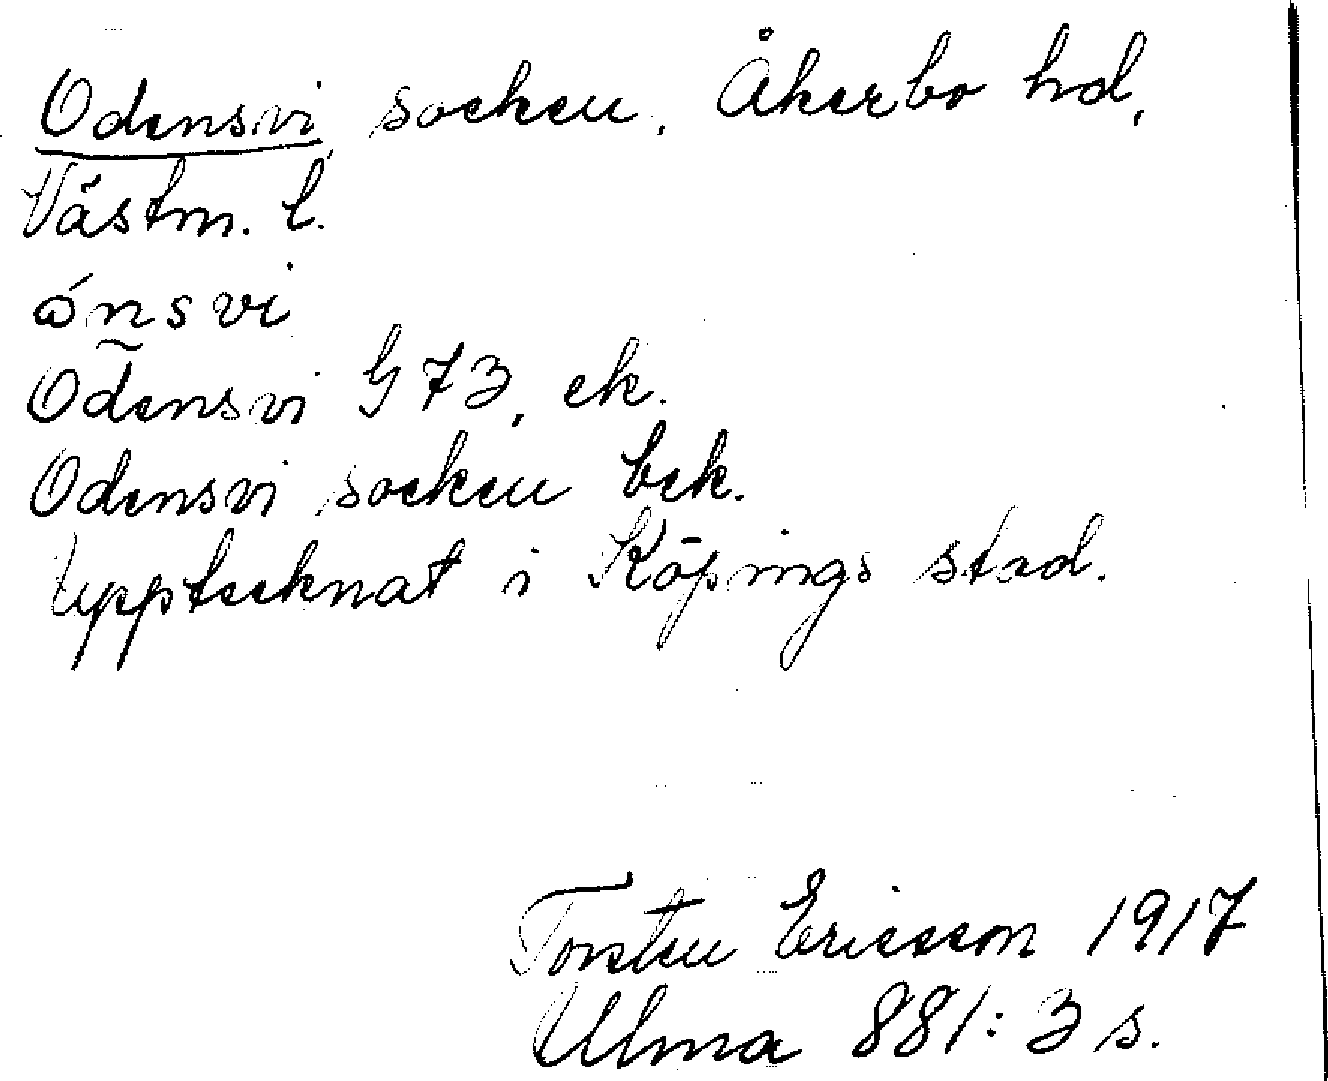 Odensvi socken. Åkerbo hd,
Västm. l.
ónsvi
Odensvi G 73, ek.
Odensvi socken bek.
Upptecknat i Köpings stad.
Torsten Ericsson 1917
Ulma 881: 3 s.